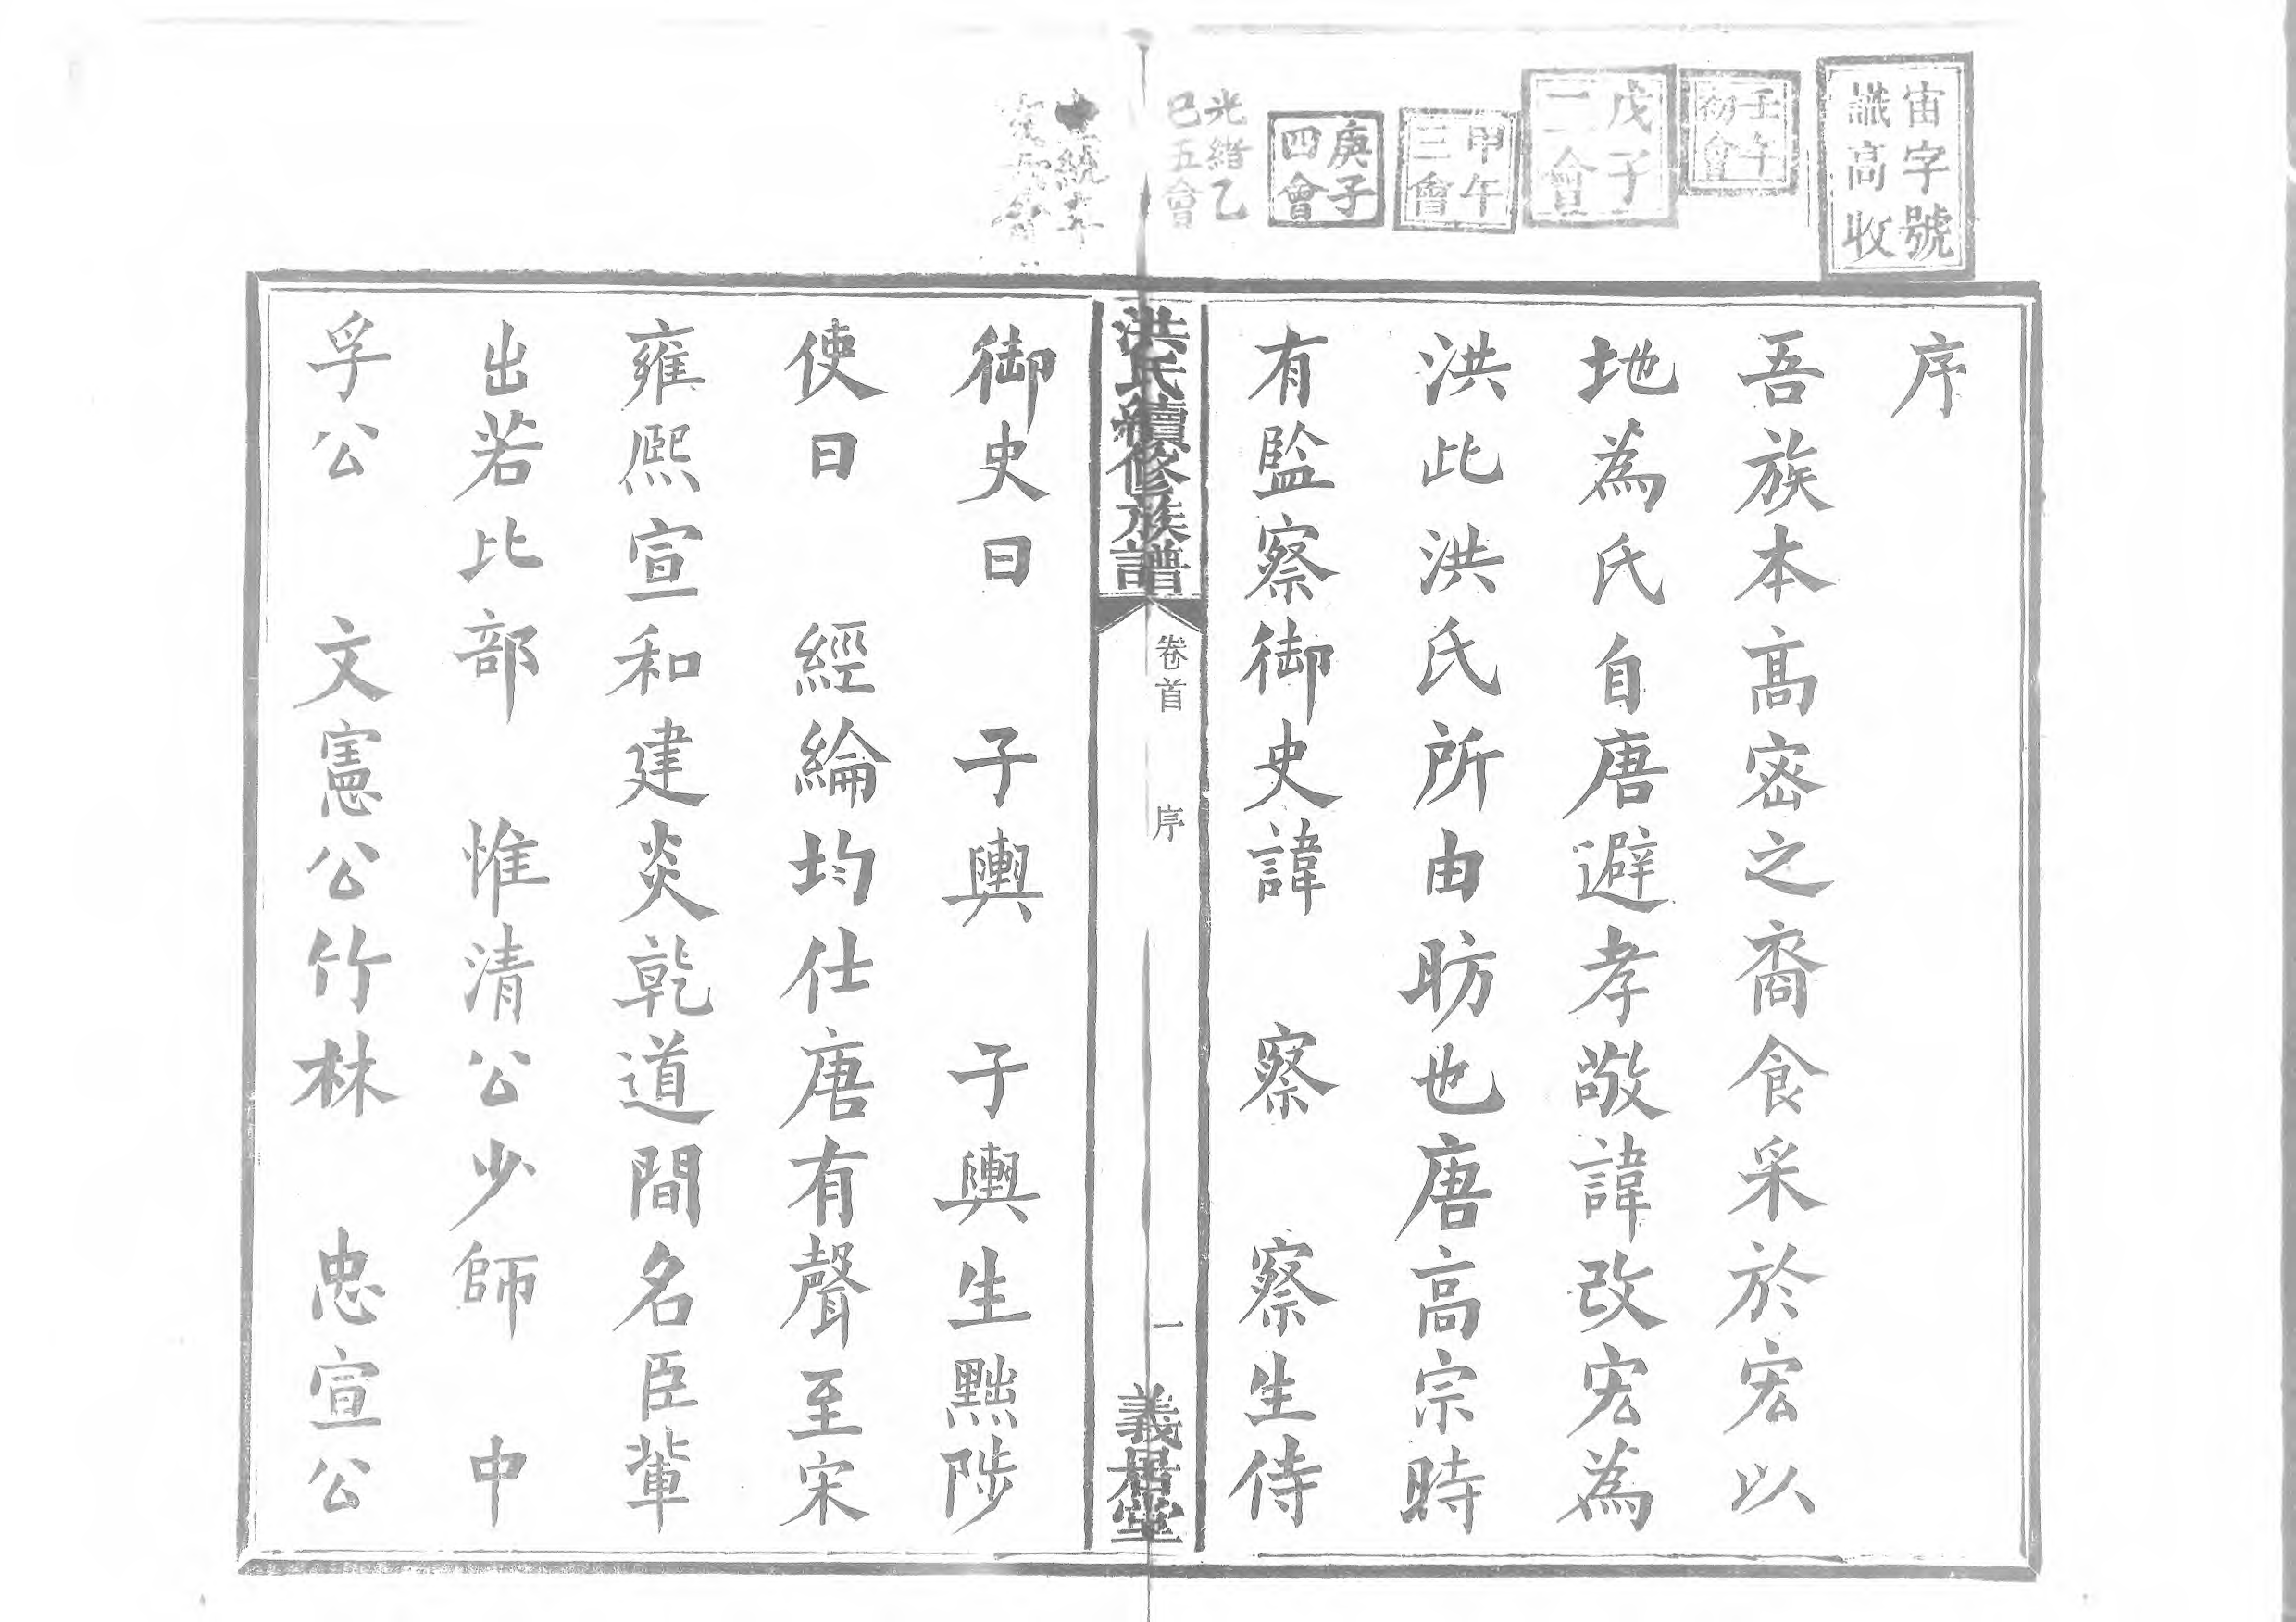 宙字號
識高收
壬午
初會
戊子
二會
甲午
三會
庚子
四會
光緒乙
巳五會
序
吾族本高密之裔食采於宏以
地為氏自唐避孝敬諱改宏為
洪此洪氏所由昉也唐高宗時
有監察御史諱 察 察生侍
洪氏續修族譜
卷首 序 一
義居堂
御史曰 子輿 子輿生黜陟
使曰 經綸均仕唐有聲至宋
雍熙宣和建炎乾道間名臣輩
出若比部 惟清公少師 中
孚公 文憲公竹林 忠宣公